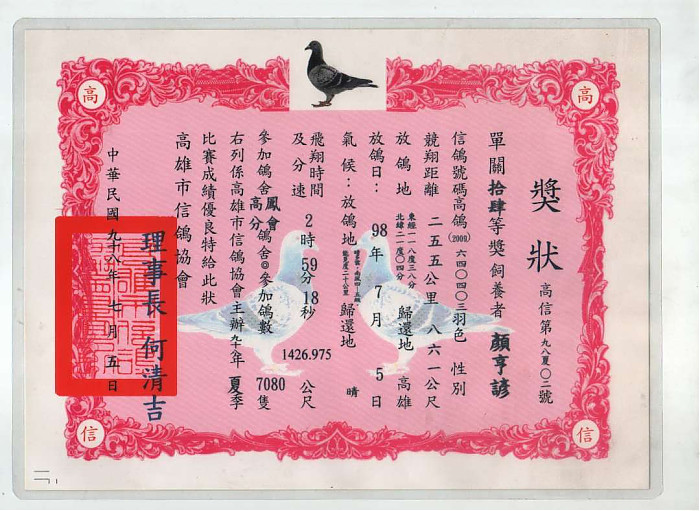 獎狀
高信第九八夏〇二號
單關拾肆等獎飼養者 顏亨諺
信鴿號碼高鴿(2009)六四〇四〇三羽色 性別
競翔距離 二五五公里 八六一公尺
放鴿地 東經一一八度三八分 北緯二一度〇四分 歸還地 高雄
放鴿日：98年7月5日
氣候：放鴿地 歸還地 晴
飛翔時間 2時59分18秒
及分速 1426.975 公尺
參加鴿舍 鳳會 高分 鴿舍◎參加鴿數 7080隻
右列係高雄市信鴿協會主辦九八年 夏季
比賽成績優良特給此狀
高雄市信鴿協會
理事長 何清吉
中華民國九十八年七月五日
高
高
信
信